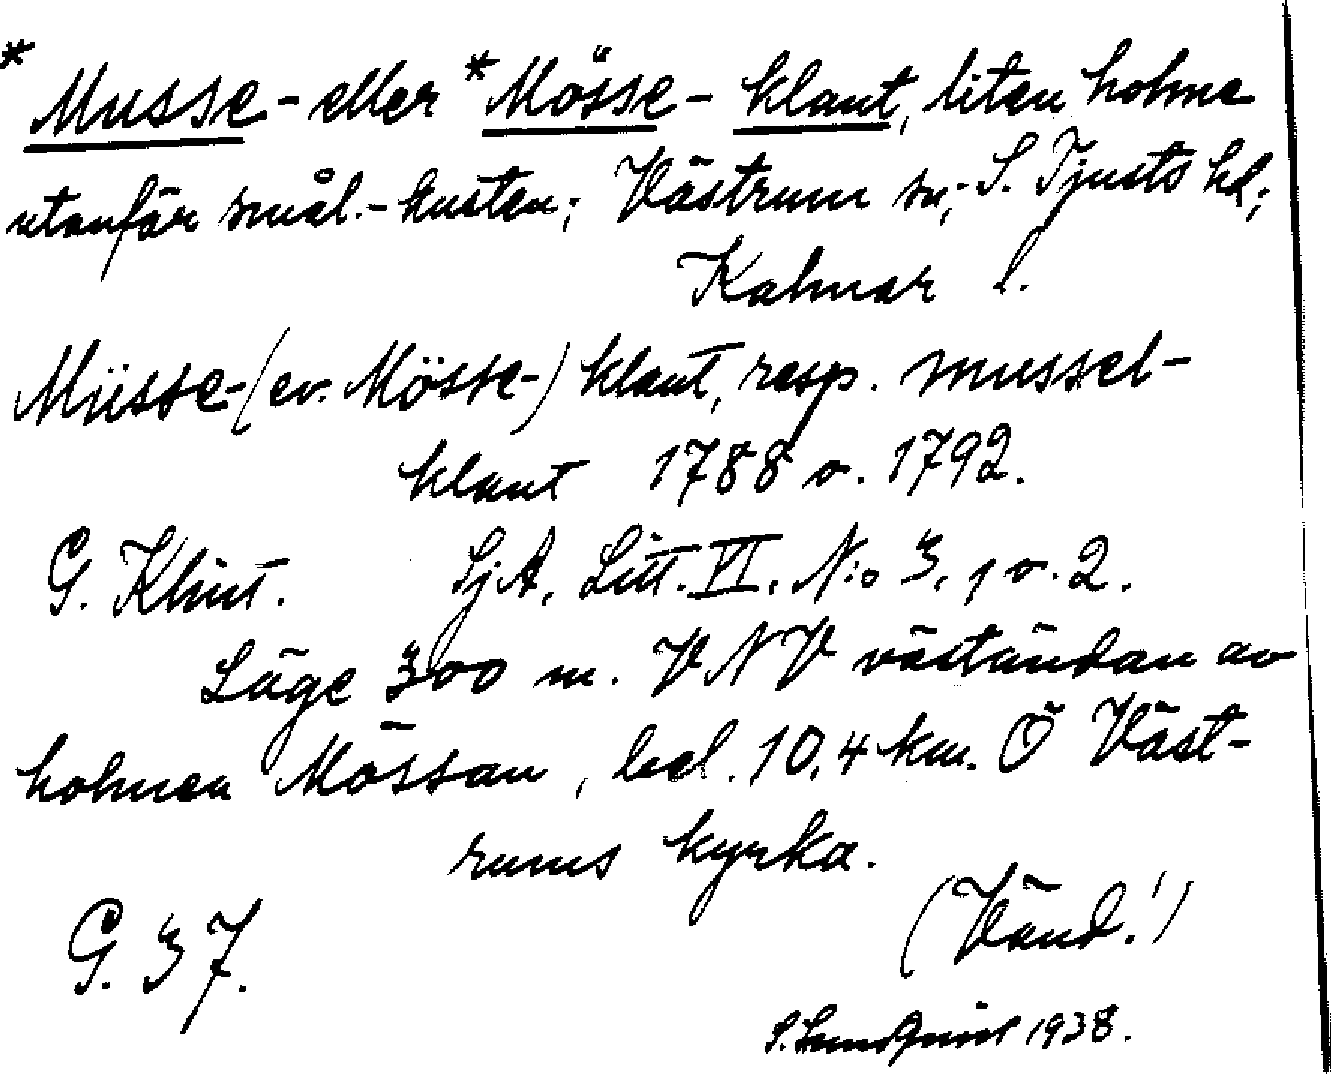 *Musse- eller *Mösse- klaut, liten holme
utanför smål.-kusten; Västrum sn; S. Tjusts hd;
Kalmar l.
Müsse-(ev. Mösse-) klaut, resp. mussel-
klaut 1788 o. 1792.
G. Klint. SjA, Litt. VI. N:o 3, 1 o. 2.
Läge 300 m. VNV väständan av
holmen Mössan, bel. 10,4 km. Ö Väst-
rums kyrka.
G. 37. (Vänd!)
S. Lundquist 1938.